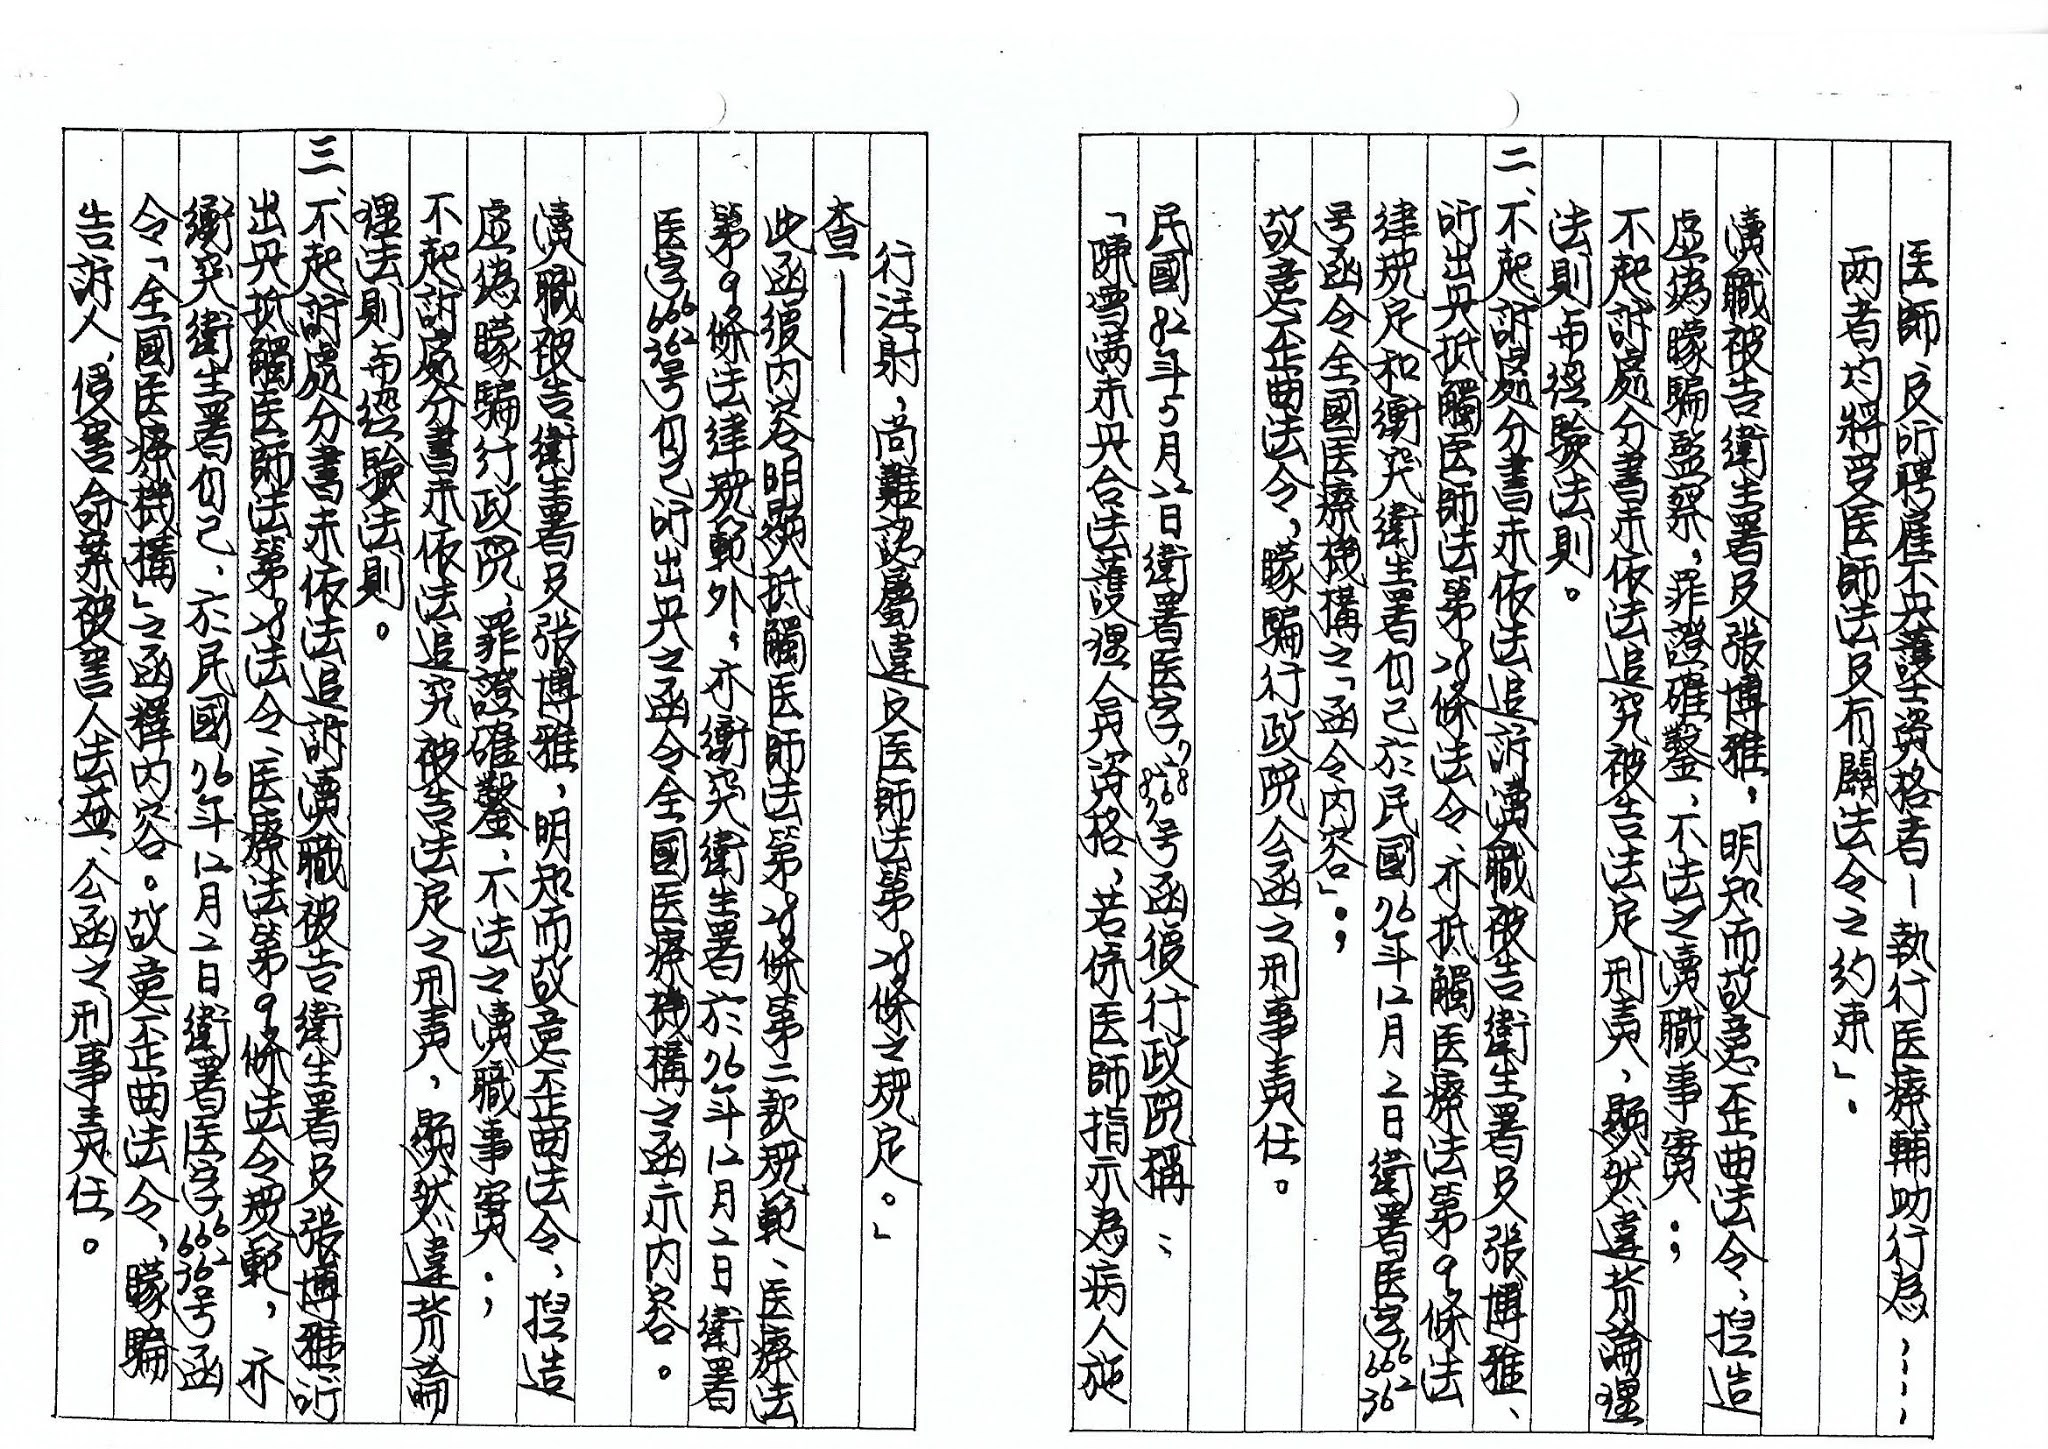 医師及所聘雇不具護士資格者—執行医療輔助行為……
两者均將受医師法及有關法令之約束」.
瀆職被告衛生署及张博雅，明知而故意歪曲法令、揑造
虛偽矇騙監察，罪證確鑿、不法之瀆職事實.；
不起訴處分書未依法追究被告法定刑責，顯然違背論理
法則与經驗法則。
二、不起訴處分書未依法追訴瀆職被告衛生署及張博雅、
所出具抵觸医師法第28條法令、亦抵觸医療法第9條法
律規定和衝突衛生署自己於民國76年12月2日衛署医字666362
号函令全國医療機構之「函令内容」.；
故意歪曲法令，矇騙行政院公函之刑事責任。
民國82年5月22日衛署医字号函復行政院稱：
「陳雪满未具合法護理人員資格，若係医師指示為病人施
行注射，尚難認屬違反医師法第28條之規定。」
查——
此函復内容明顯抵觸医師法第28條第二款規範、医療法
第9條法律規範外，亦衝突衛生署於76年12月2日衛署
医字666362号自己所出具之函令全國医療機構之函示内容。
瀆職被告衛生署及张博雅，明知而故意歪曲法令、揑造
虛偽矇騙行政院、罪證確鑿、不法之瀆職事實.；
不起訴處分書未依法追究被告法定之刑責，顯然違背論
理法則与經驗法則。
三、不起訴處分書未依法追訴瀆職被告衛生署及張博雅所
出具抵觸医師法第28法令、医療法第9條法令規範，亦
衝突衛生署自己、於民國76年12月2日衛署医字666362号函
令「全國医療機構」之函釋内容。故意歪曲法令、矇騙
告訴人，侵害命案被害人法益、公函之刑事責任。